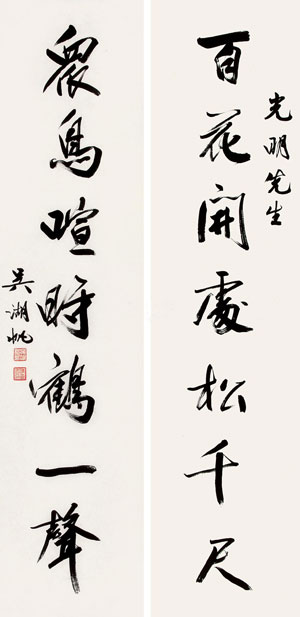 光明先生
百花開處松千尺
衆鳥喧時鶴一聲
吳湖帆